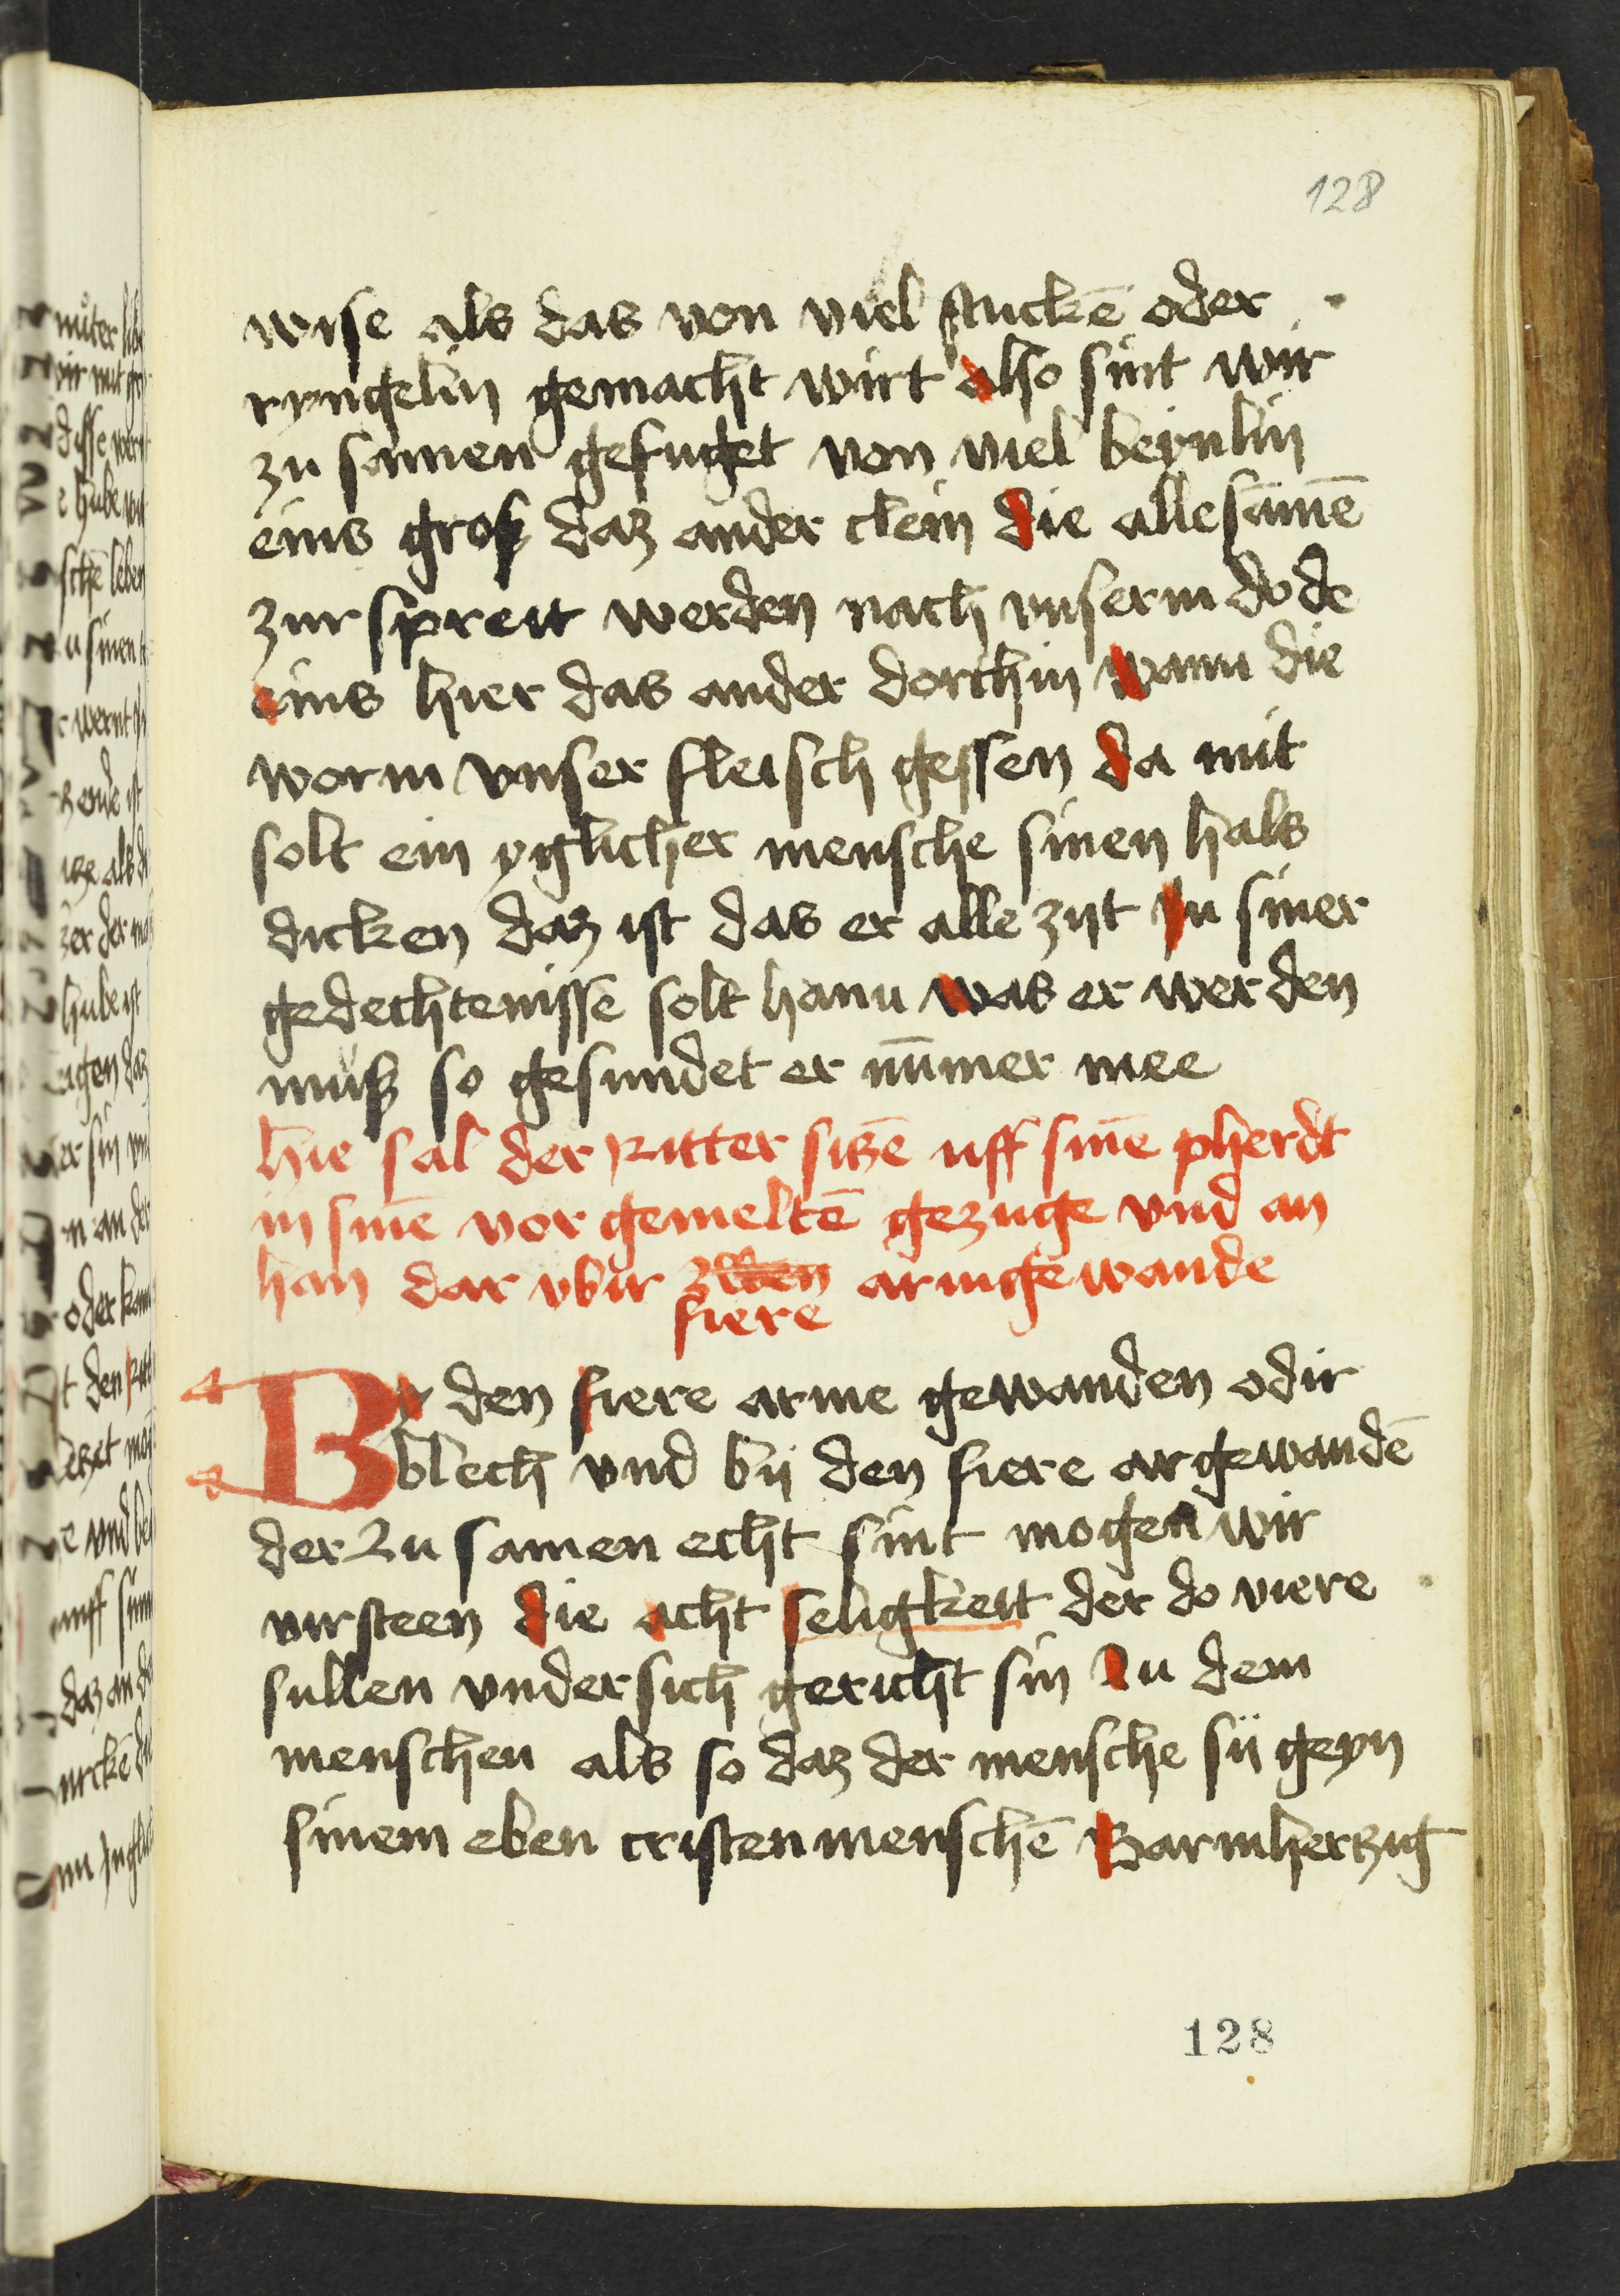 128
wise als das von viel stuckē oder
ryngelin gemacht wirt also sint wir
zu samen gefuget von viel beynlin
eins grosz daz ander clein die alle samē
zur spreit werden nach vnserm dode
eins hier das ander dorthin wann die
worm vnser fleisch gessen da mit
solt ein yglicher mensche sinen hals
dicken daz ist das er alle zijt In siner
gedechtenisse solt hann was er werden
müsz so gesundet er nūmer mee
hie sal der Ritter sitzē uff sinē pherdt
in sinē vor gemeltē gezuge vnd an
han dar vbir armgewande
fiere
By den fiere arme gewanden odir
blech vnd bij den fiere argewandē
der zu samen echt sint mogen wir
virsteen die acht seligkeit der do viere
sullen vnder sich gericht sin In dem
menschen als so daz der mensche sij geyn
sinem eben cristen menschē Barmhertzig
128